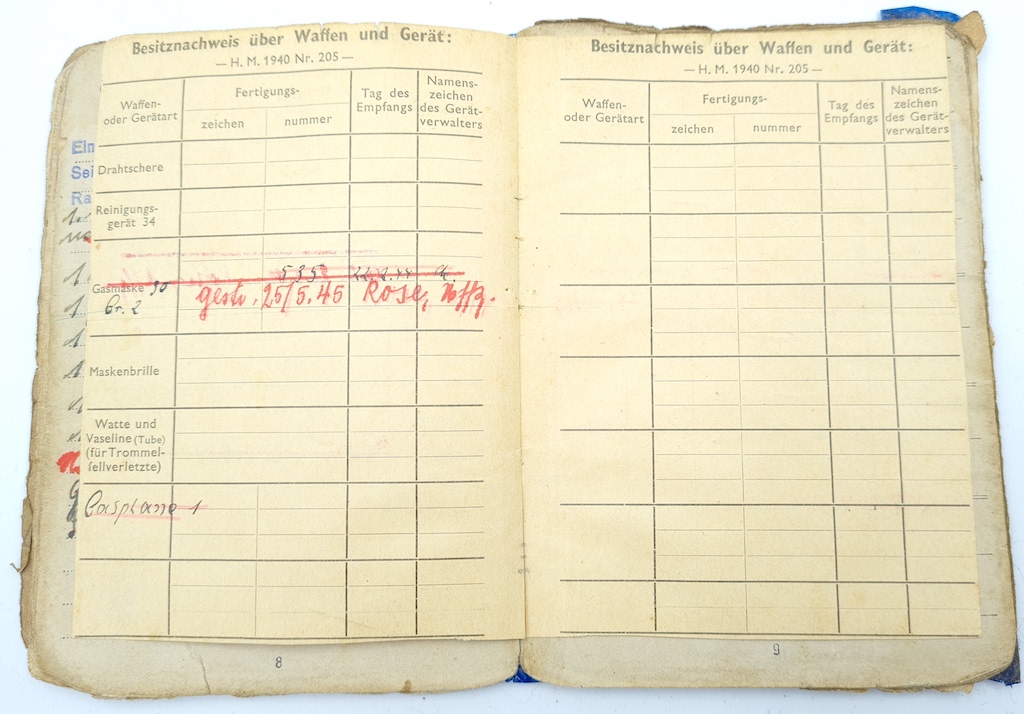 Besitznachweis über Waffen und Gerät:
— H. M. 1940 Nr. 205 —
Waffen-
oder Gerätart
Fertigungs-
zeichen
nummer
Tag des
Empfangs
Namens-
zeichen
des Gerät-
verwalters
Drahtschere
Reinigungs-
gerät 34
535 22.2.44
Gasmaske 30
Gr. 2
gestr. 25/5.45 Rose, Uffz.
Maskenbrille
Watte und
Vaseline (Tube)
(für Trommel-
fellverletzte)
Gasplane 1
8
Besitznachweis über Waffen und Gerät:
— H. M. 1940 Nr. 205 —
Waffen-
oder Gerätart
Fertigungs-
zeichen
nummer
Tag des
Empfangs
Namens-
zeichen
des Gerät-
verwalters
9